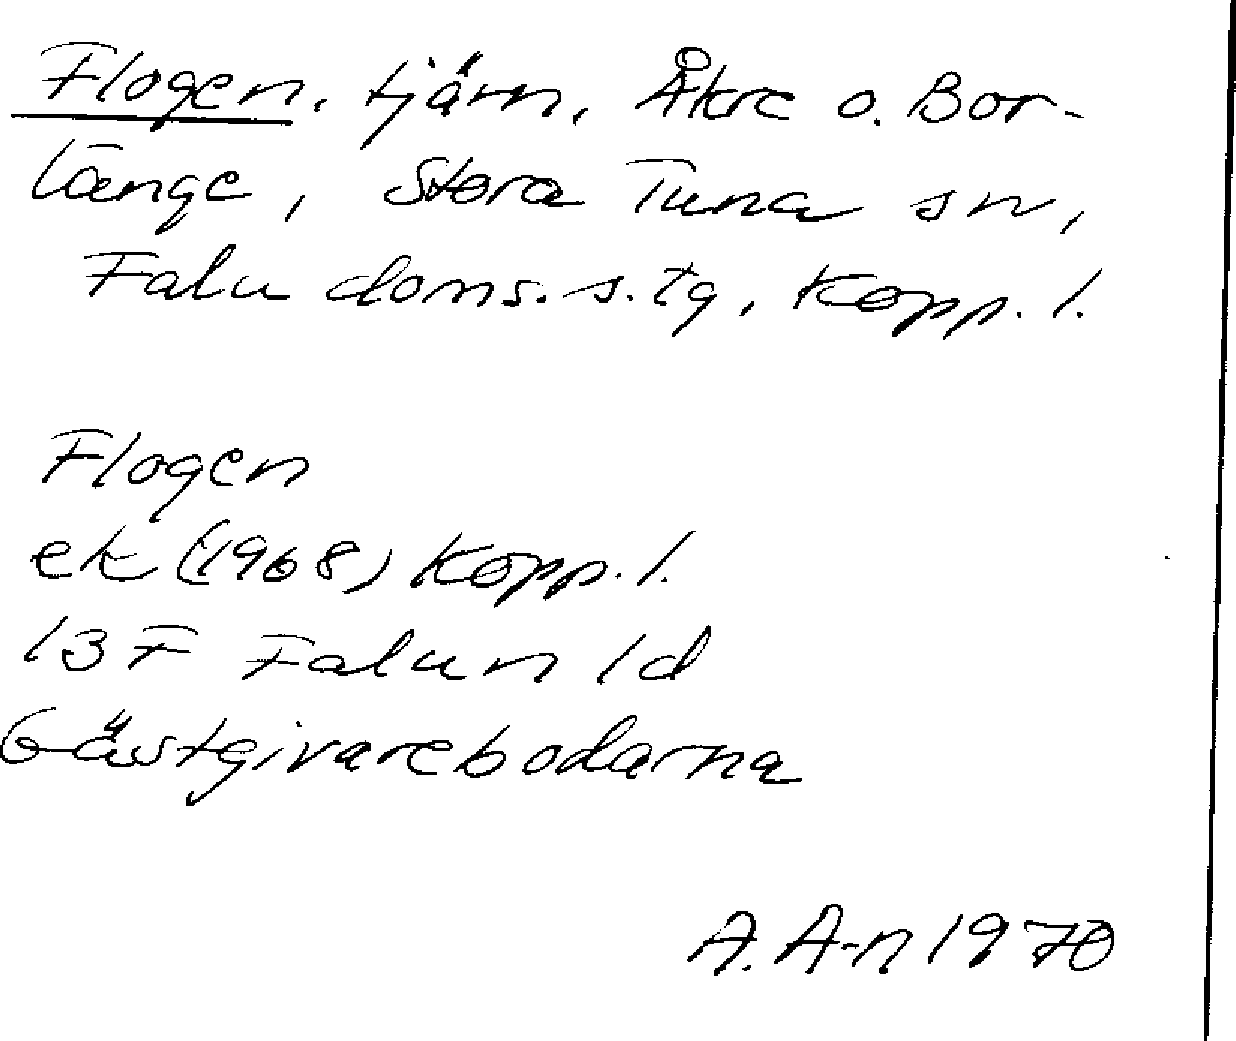 Flogen, tjärn, Åkre o. Bor-
länge, Stora Tuna sn,
Falu doms.s.tg, Kopp. l.
Flogen
ek (1968) Kopp. l.
13F Falun 1d
Gästgivarebodarna
A. A-n 1970